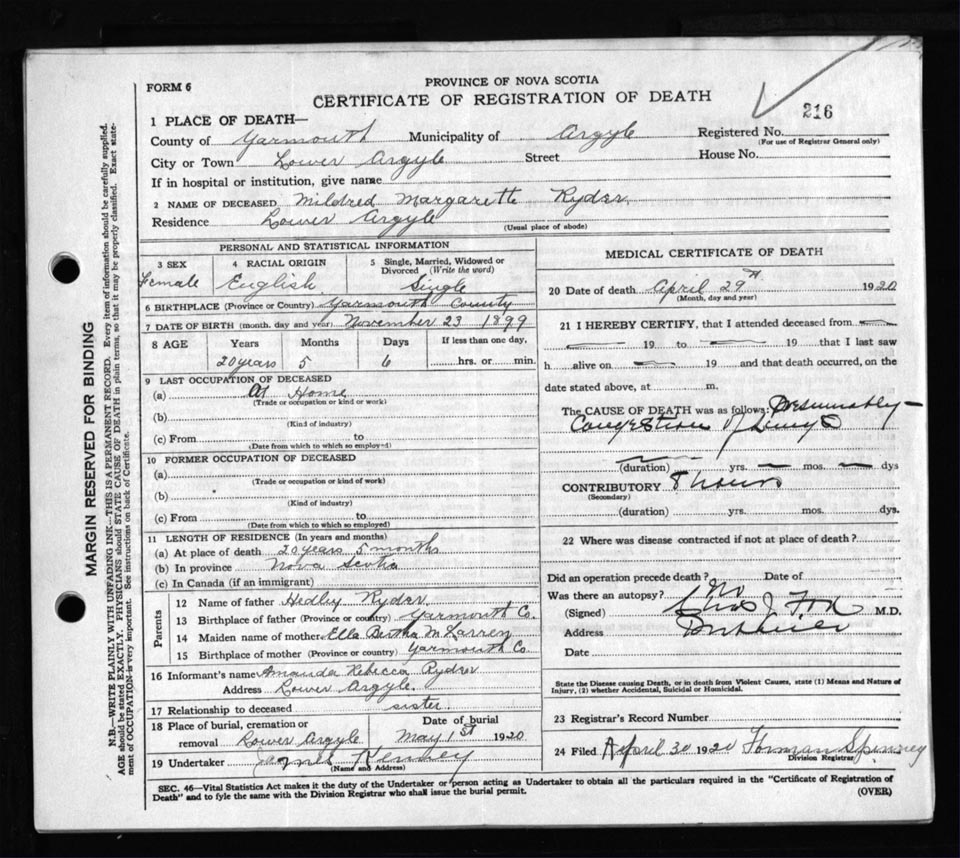 FORM 6
PROVINCE OF NOVA SCOTIA
CERTIFICATE OF REGISTRATION OF DEATH
216
1 PLACE OF DEATH—
County of Yarmouth Municipality of Argyle Registered No.
(For use of Registrar General only)
City or Town Lower Argyle Street House No.
If in hospital or institution, give name
2 NAME OF DECEASED Mildred Margarette Ryder
Residence Lower Argyle
(Usual place of abode)
PERSONAL AND STATISTICAL INFORMATION
3 SEX 4 RACIAL ORIGIN 5 Single, Married, Widowed or
Divorced (Write the word)
Female English Single
6 BIRTHPLACE (Province or Country) Yarmouth County
7 DATE OF BIRTH (month, day and year) November 23 1899
8 AGE Years Months Days If less than one day,
20 years 5 6 hrs. or min.
9 LAST OCCUPATION OF DECEASED
(a) At Home
(Trade or occupation or kind or work)
(b)
(Kind of industry)
(c) From to
(Date from which to which so employed)
10 FORMER OCCUPATION OF DECEASED
(a)
(Trade or occupation or kind of work)
(b)
(Kind of industry)
(c) From to
(Date from which to which so employed)
11 LENGTH OF RESIDENCE (In years and months)
(a) At place of death 20 years 5 months
(b) In province Nova Scotia
(c) In Canada (if an immigrant)
Parents
12 Name of father Hedley Ryder
13 Birthplace of father (Province or country) Yarmouth Co.
14 Maiden name of mother Ella Bertha
15 Birthplace of mother (Province or country) Yarmouth Co
16 Informant's name Amanda Rebecca Ryder
Address Lower Argyle.
17 Relationship to deceased sister
18 Place of burial, cremation or Date of burial
removal Lower Argyle May 1st 1920
19 Undertaker Kenney
(Name and Address)
MEDICAL CERTIFICATE OF DEATH
20 Date of death April 29th 1920
(Month, day and year)
21 I HEREBY CERTIFY, that I attended deceased from
19 to 19 that I last saw
h alive on 19 and that death occurred, on the
date stated above, at m.
The CAUSE OF DEATH was as follows: Presumably
Congestion of Lungs
(duration) yrs. mos. dys
CONTRIBUTORY 8 hours
(Secondary)
(duration) yrs. mos. dys.
22 Where was disease contracted if not at place of death?
Did an operation precede death? Date of
Was there an autopsy? No
(Signed) Chas J. Fox M.D.
Address Pubnico
Date
State the Disease causing Death, or in death from Violent Causes, state (1) Means and Nature of
Injury, (2) whether Accidental, Suicidal or Homicidal.
23 Registrar's Record Number
24 Filed April 30 1920 Forman Spinney
Division Registrar
SEC. 46—Vital Statistics Act makes it the duty of the Undertaker or person acting as Undertaker to obtain all the particulars required in the "Certificate of Registration of
Death" and to fyle the same with the Division Registrar who shall issue the burial permit. (OVER)
MARGIN RESERVED FOR BINDING
N.B.—WRITE PLAINLY WITH UNFADING INK—THIS IS A PERMANENT RECORD. Every item of information should be carefully supplied.
AGE should be stated EXACTLY. PHYSICIANS should STATE CAUSE OF DEATH in plain terms, so that it may be properly classified. Exact state-
ment of OCCUPATION is very important. See instructions on back of Certificate.